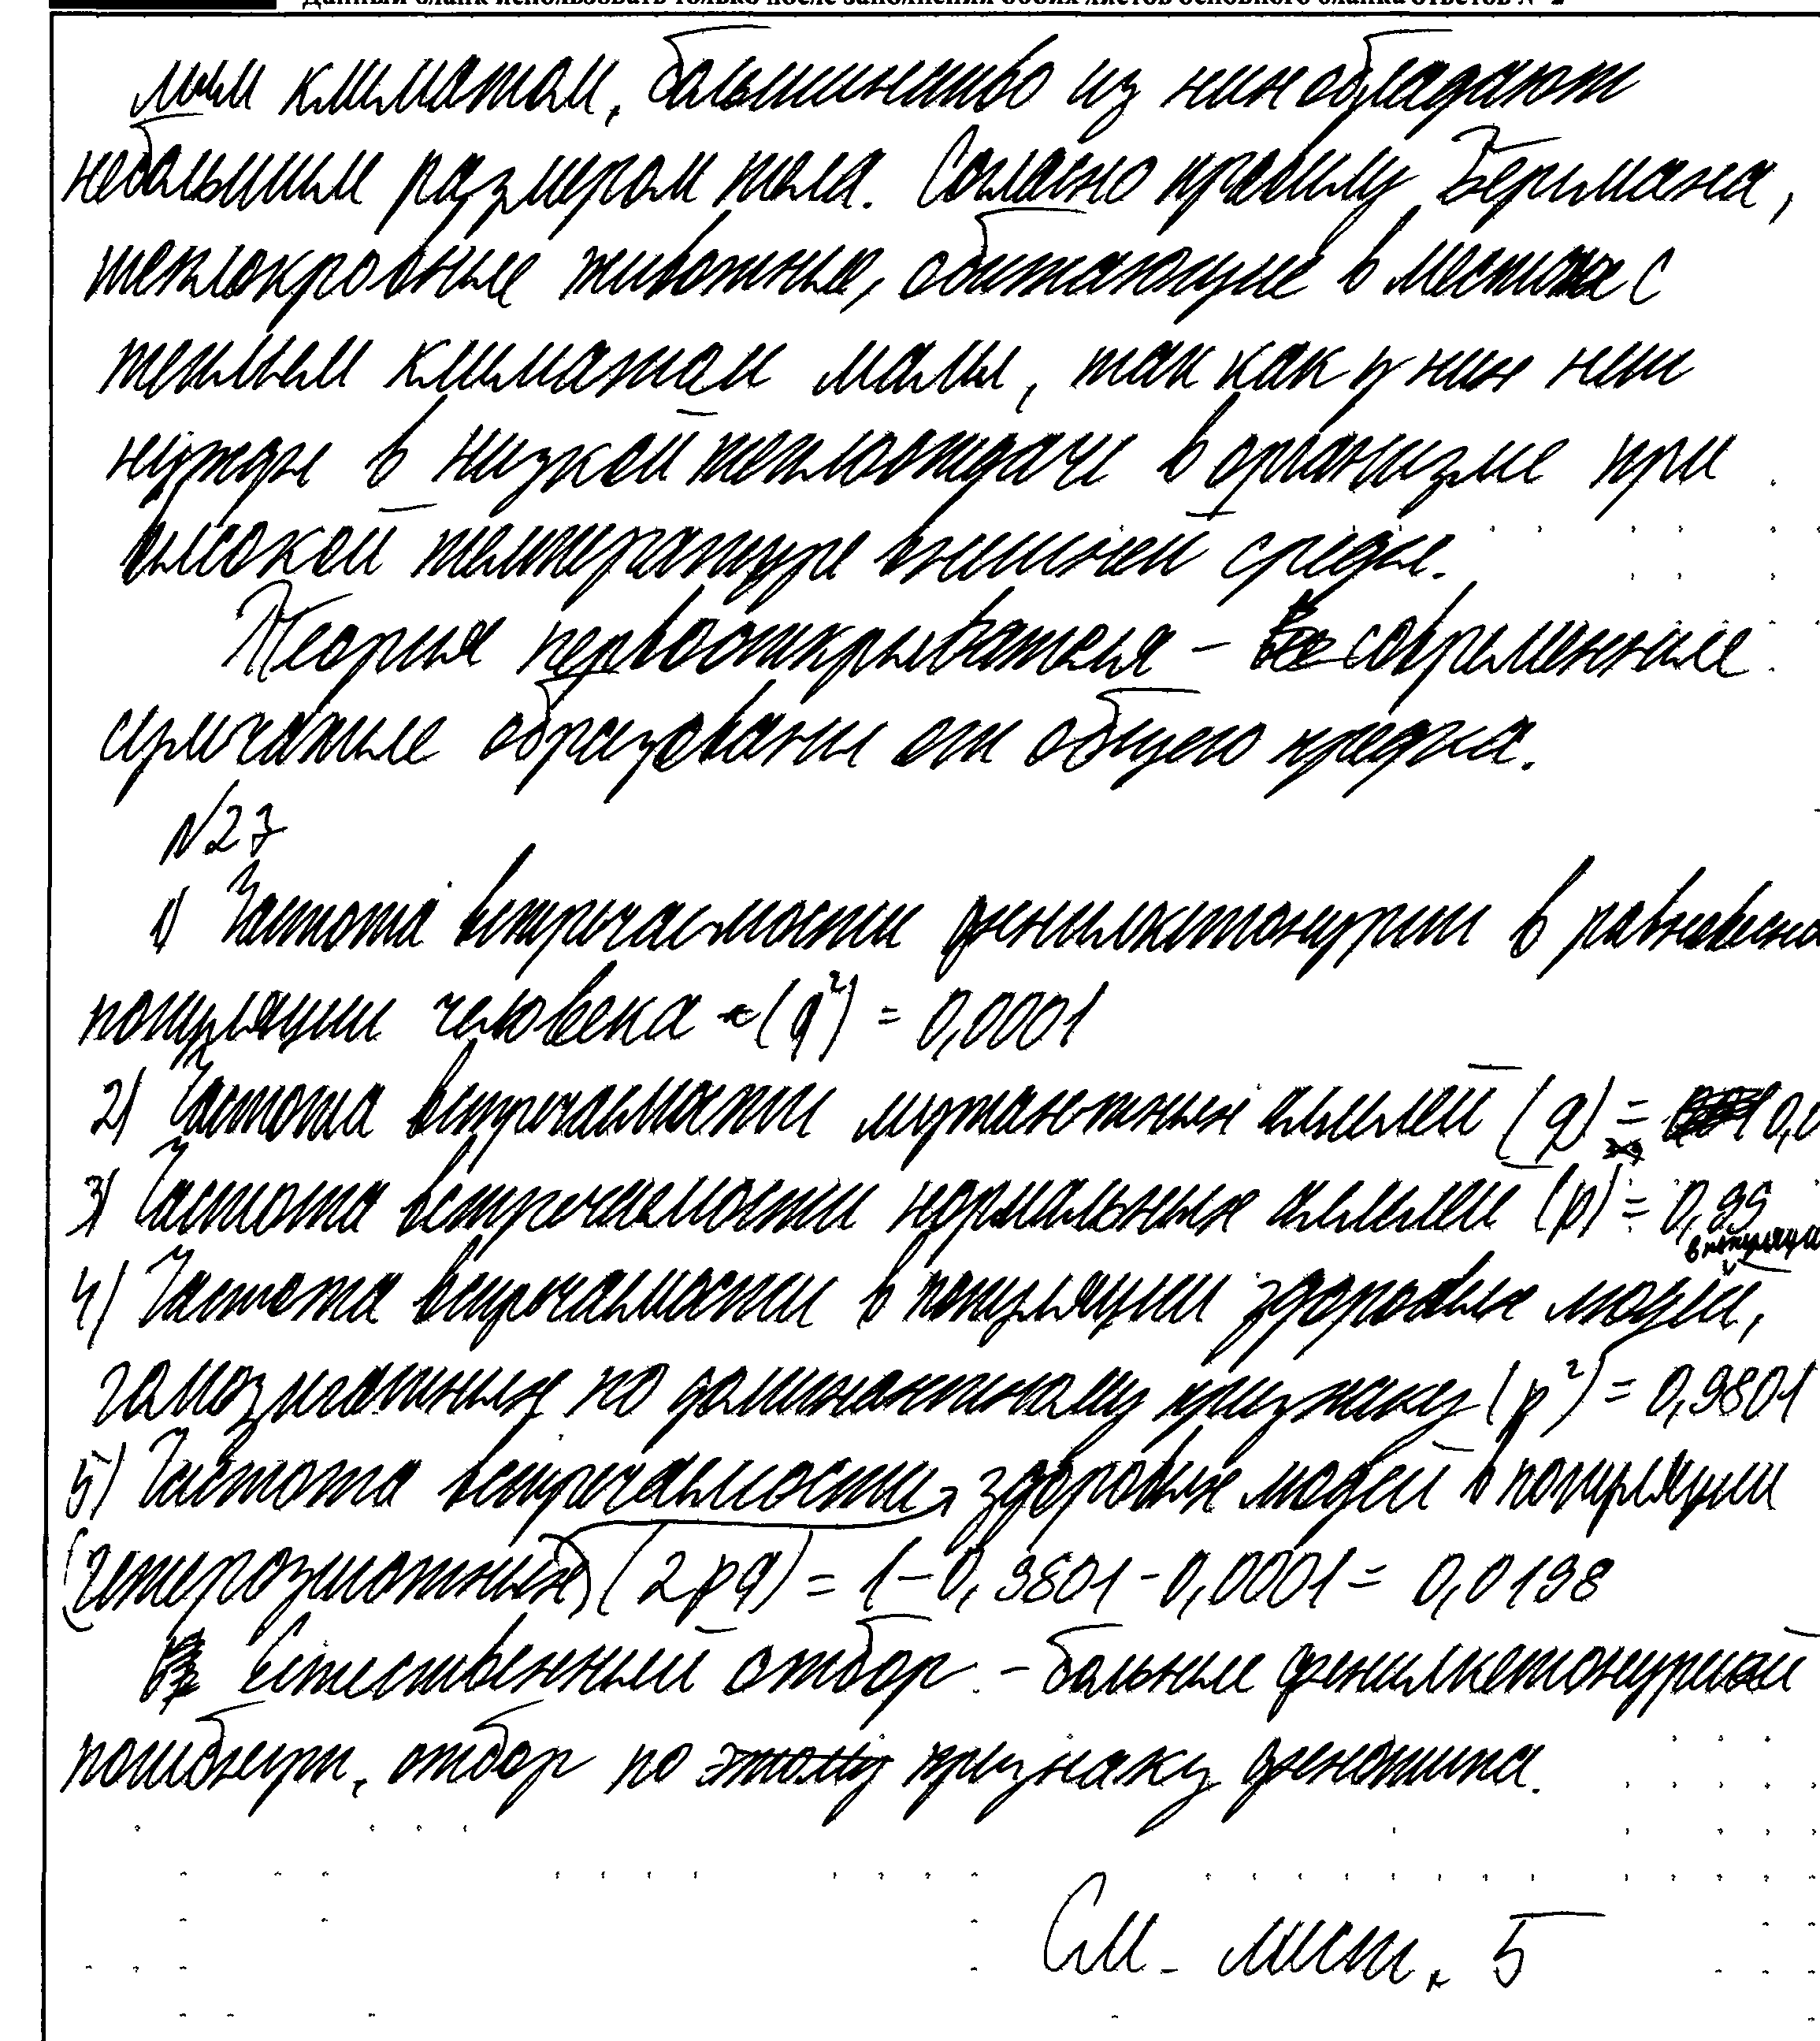 Данный бланк использовать только после заполнения обоих листов основного бланка ответов № 2
лым климатом, большинство из них обладают
небольшим размером тела. Согласно правилу Бергмана,
теплокровные животные, обитающие в местах с
теплым климатом малы, так как у них нет
нужды в низкой теплоотдаче в организме при
высокой температуре внешней среды.
Теория первооткрывателя - современные
сумчатые образованы от общего предка.
№27
1) Частота встречаемости фенилкетонурии в равновесно
популяции человека - (q²) = 0,0001
2) Частота встречаемости мутантных аллелей (q) = 0,0
3) Частота встречаемости нормальных аллелей (p) = 0,99
в популяции
4) Частота встречаемости в популяции здоровых людей,
гомозиготных по доминантному признаку (p²) = 0,9801
5) Частота встречаемости здоровых людей в популяции
(гетерозиготных) (2pq) = 1-0,9801-0,0001 = 0,0198
Естественный отбор - больные фенилкетонурией
погибнут, отбор по этому признаку фенотипа.
См. лист. 5